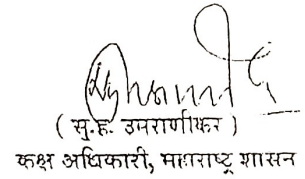 ( सु.ह. उमराणीकर )
कक्ष अधिकारी, महाराष्ट्र शासन